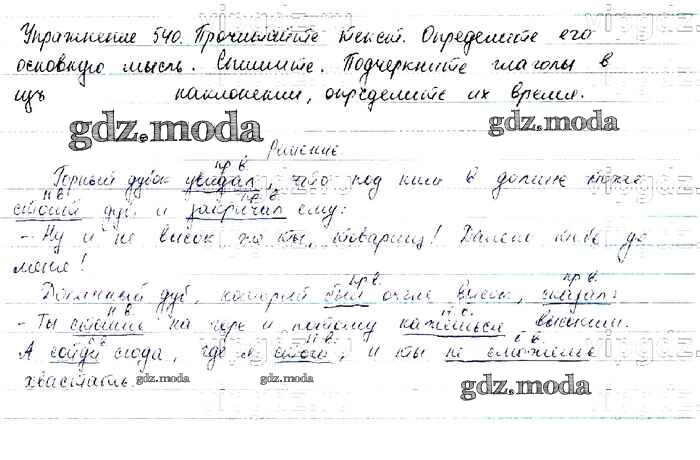 Упражнение 540. Прочитайте текст. Определите его
основную мысль. Спишите. Подчеркните глаголы в
изъ наклонении, определите их время.
gdz.moda gdz.moda
Решение
пр.в.
Горный дубок увидал, что под ним в долине тоже
н.в. пр.в.
стоит дуб и закричал ему:
- Ну и не высок же ты, товарищ! Далеко тебе до
меня!
пр.в. пр.в.
Долинный дуб, который был очень высок, сказал:
н.в. н.в.
- Ты стоишь на горе и потому кажешься высоким.
н.в. б.в.
А сойди сюда, где я стою, и ты не сможешь
хвастать.
gdz.moda gdz.moda gdz.moda